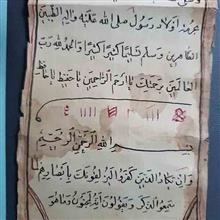 محمد اولاد رسول صلى الله عليه واله الطيبين
الطاهرين وسلم تسليما كثيرا كثيرا والحمد لله رب
العالمين برحمتك يا ارحم الراحمين يا حفيظ يا حافظ
بسم الله الرحمن الرحيم
وان يكاد الذين كفروا ليزلقونك بابصارهم
سمعوا الذكر ويقولون انه لمجنون وما هو